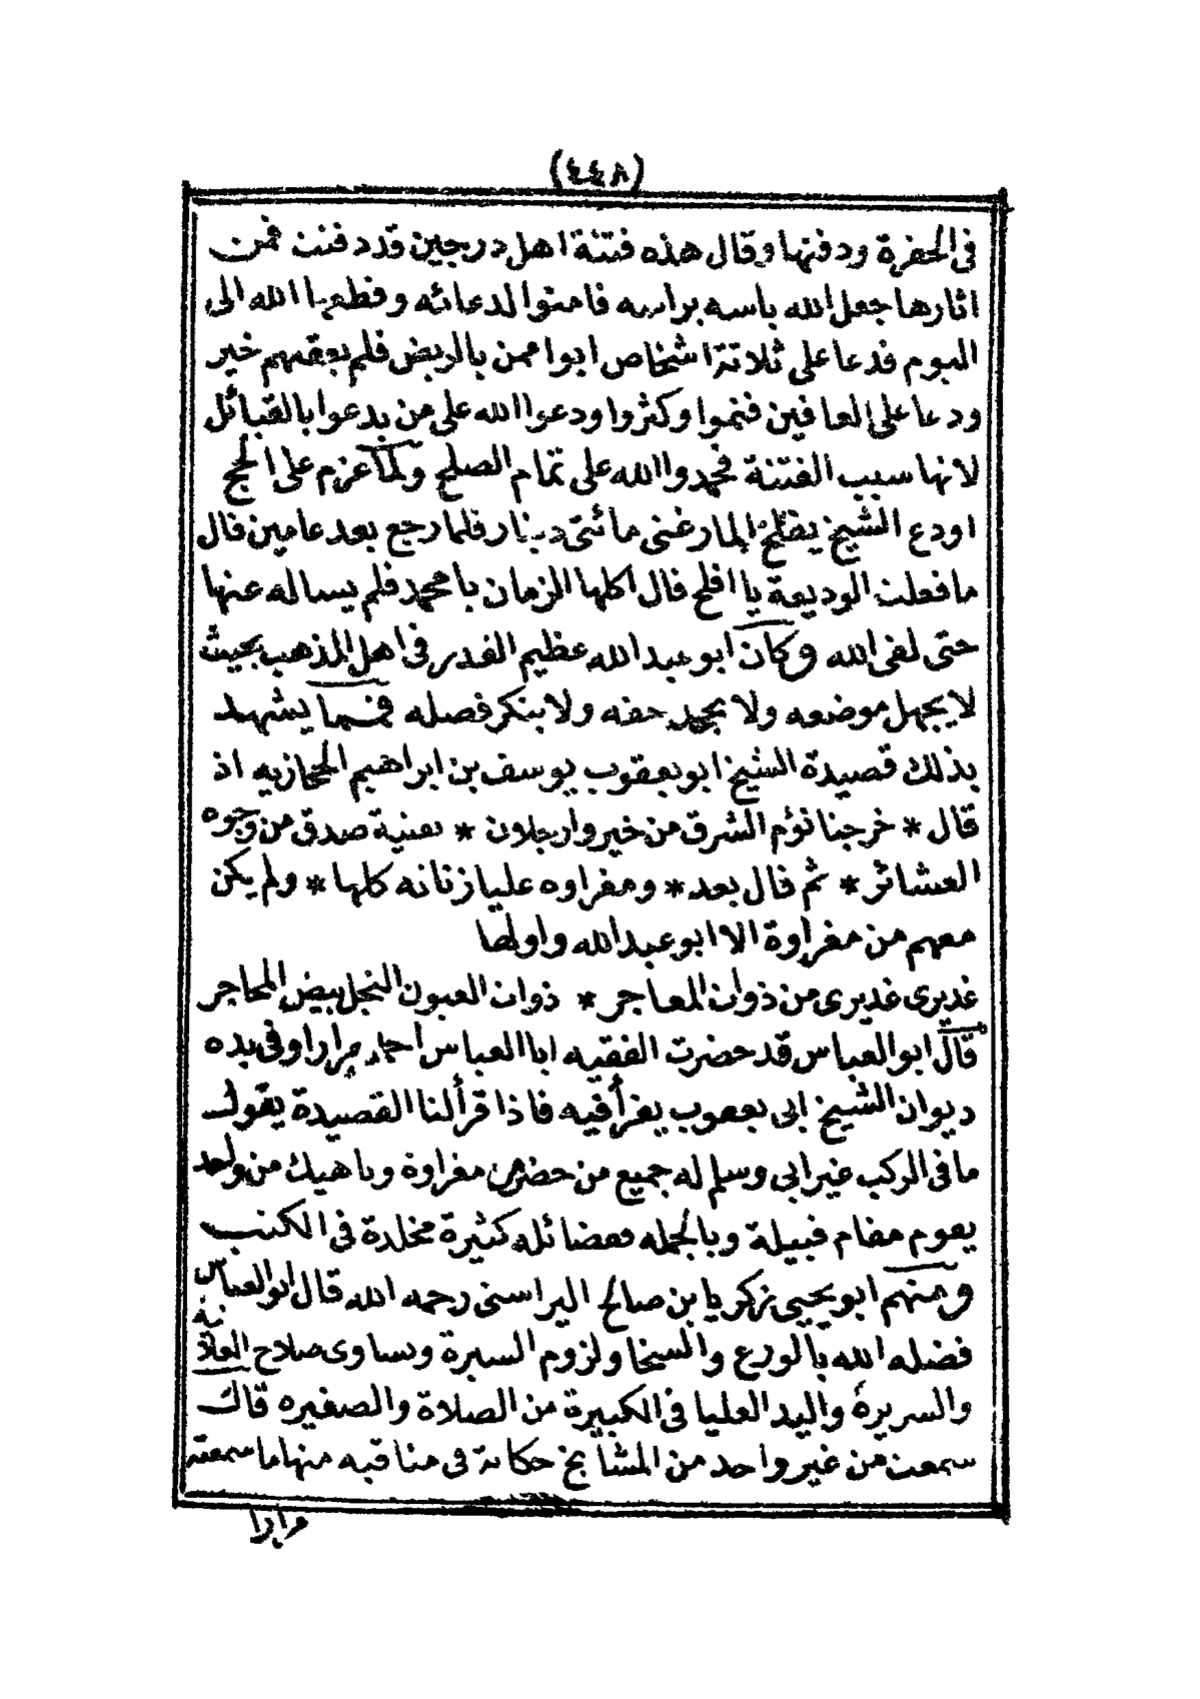 (٤٤٨)
فى الحفرة ودفنها وقال هذه فتنة اهل درجين قد دفنت فمن
اثارها جعل الله باسه براسه فامنوا لدعائه وقطعها الله الى
اليوم فدعا على ثلاثة اشخاص ابوا ممن بالربض فلم يعقبهم خير
ودعا على العافين فنموا وكثروا ودعوا الله على من يدعوا بالقبائل
لانها سبب الفتنة فحمدوا الله على تمام الصلح ولما عزم على الحج
اودع الشيخ يفلح المارغنى مائتى دينار فلما رجع بعد عامين قال
ما فعلت الوديعة يا افلح قال اكلها الزمان يا محمد فلم يساله عنها
حتى لقى الله وكان ابو عبد الله عظيم القدر فى اهل المذهب بحيث
لا يجهل موضعه ولا يجحد حقه ولا ينكر فضله فمما يشهد
بذلك قصيدة الشيخ ابو يعقوب يوسف بن ابراهيم الحجازيه اذ
قال * خرجنا نؤم الشرق من خير وارجلان * بفتية صدق من وجوه
العشائر * ثم قال بعد * ومغراوه عليا زناته كلها * ولم يكن
معهم من مغراوة الا ابو عبد الله واولها
غديرى غديرى من ذوات المعاجر * ذوات العيون النجل بيض المحاجر
قال ابو العباس قد حضرت الفقيه ابا العباس احمد مرارا وفى يده
ديوان الشيخ ابى يعقوب يقرأ فيه فاذا قرأ لنا القصيدة يقول
ما فى الركب غير ابى وسلم له جميع من حضر من مغراوة وناهيك من واحد
يقوم مقام قبيلة وبالجمله ففضائله كثيرة مخلدة فى الكتب
ومنهم ابو يحيى زكريا بن صالح اليراسنى رحمه الله قال ابو العباس
فضله الله بالورع والسخا ولزوم السيرة وتساوى صلاح العلانية
والسريرة واليد العليا فى الكبيرة من الصلاة والصغيره قال
سمعت من غير واحد من المشايخ حكاية فى مناقبه منها ما سمعته
مرارا